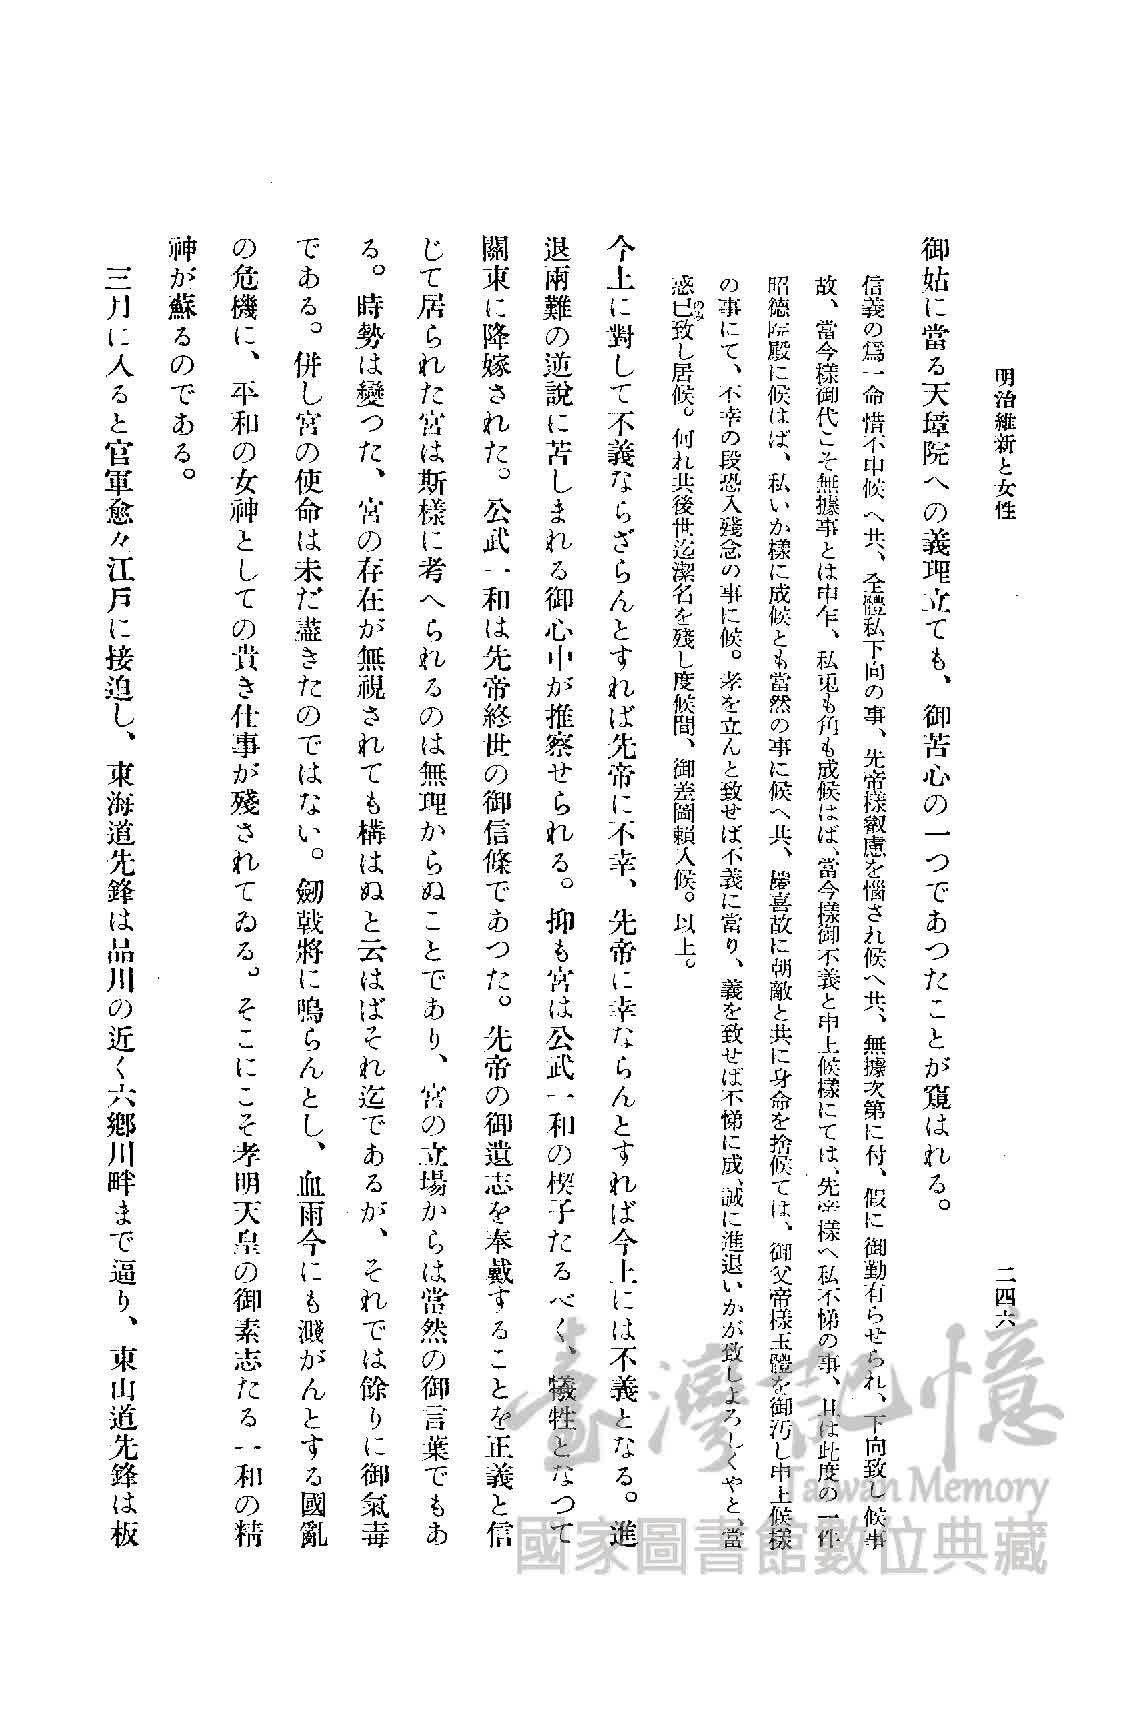 明治維新と女性
二四六
御姑に當る天璋院への義理立ても、御苦心の一つであつたことが窺はれる。
信義の爲一命惜不申候へ共、全體私下向の事、先帝樣叡慮を惱され候へ共、無據次第に付、假に御勤有らせられ、下向致し候事
故、當今樣御代こそ無據事とは申乍、私兎も角も成候はば、當今樣御不義と申上候樣にては、先帝樣へ私不悌の事、且は此度の一件
昭德院殿に候はば、私いか樣に成候とも當然の事に候へ共、慶喜故に朝敵と共に身命を捨候ては、御父帝樣玉體を御汚し申上候樣
の事にて、不幸の段恐入殘念の事に候。孝を立んと致せば不義に當り、義を致せば不悌に成、誠に進退いかが致しよろしくやと、當
惑已致し居候。何れ共後世迄潔名を殘し度候間、御差圖賴入候。以上。
のみ
今上に對して不義ならざらんとすれば先帝に不幸、先帝に幸ならんとすれば今上には不義となる。進
退兩難の逆說に苦しまれる御心中が推察せられる。抑も宮は公武一和の楔子たるべく、犧牲となつて
關東に降嫁された。公武一和は先帝終世の御信條であつた。先帝の御遺志を奉戴することを正義と信
じて居られた宮は斯樣に考へられるのは無理からぬことであり、宮の立場からは當然の御言葉でもあ
る。時勢は變つた、宮の存在が無視されても構はぬと云はばそれ迄であるが、それでは餘りに御氣毒
である。併し宮の使命は未だ盡きたのではない。劒戟將に鳴らんとし、血雨今にも濺がんとする國亂
の危機に、平和の女神としての貴き仕事が殘されてゐる。そこにこそ孝明天皇の御素志たる一和の精
神が蘇るのである。
三月に入ると官軍愈々江戸に接迫し、東海道先鋒は品川の近く六鄕川畔まで逼り、東山道先鋒は板
臺灣記憶
Taiwan Memory
國家圖書館數位典藏